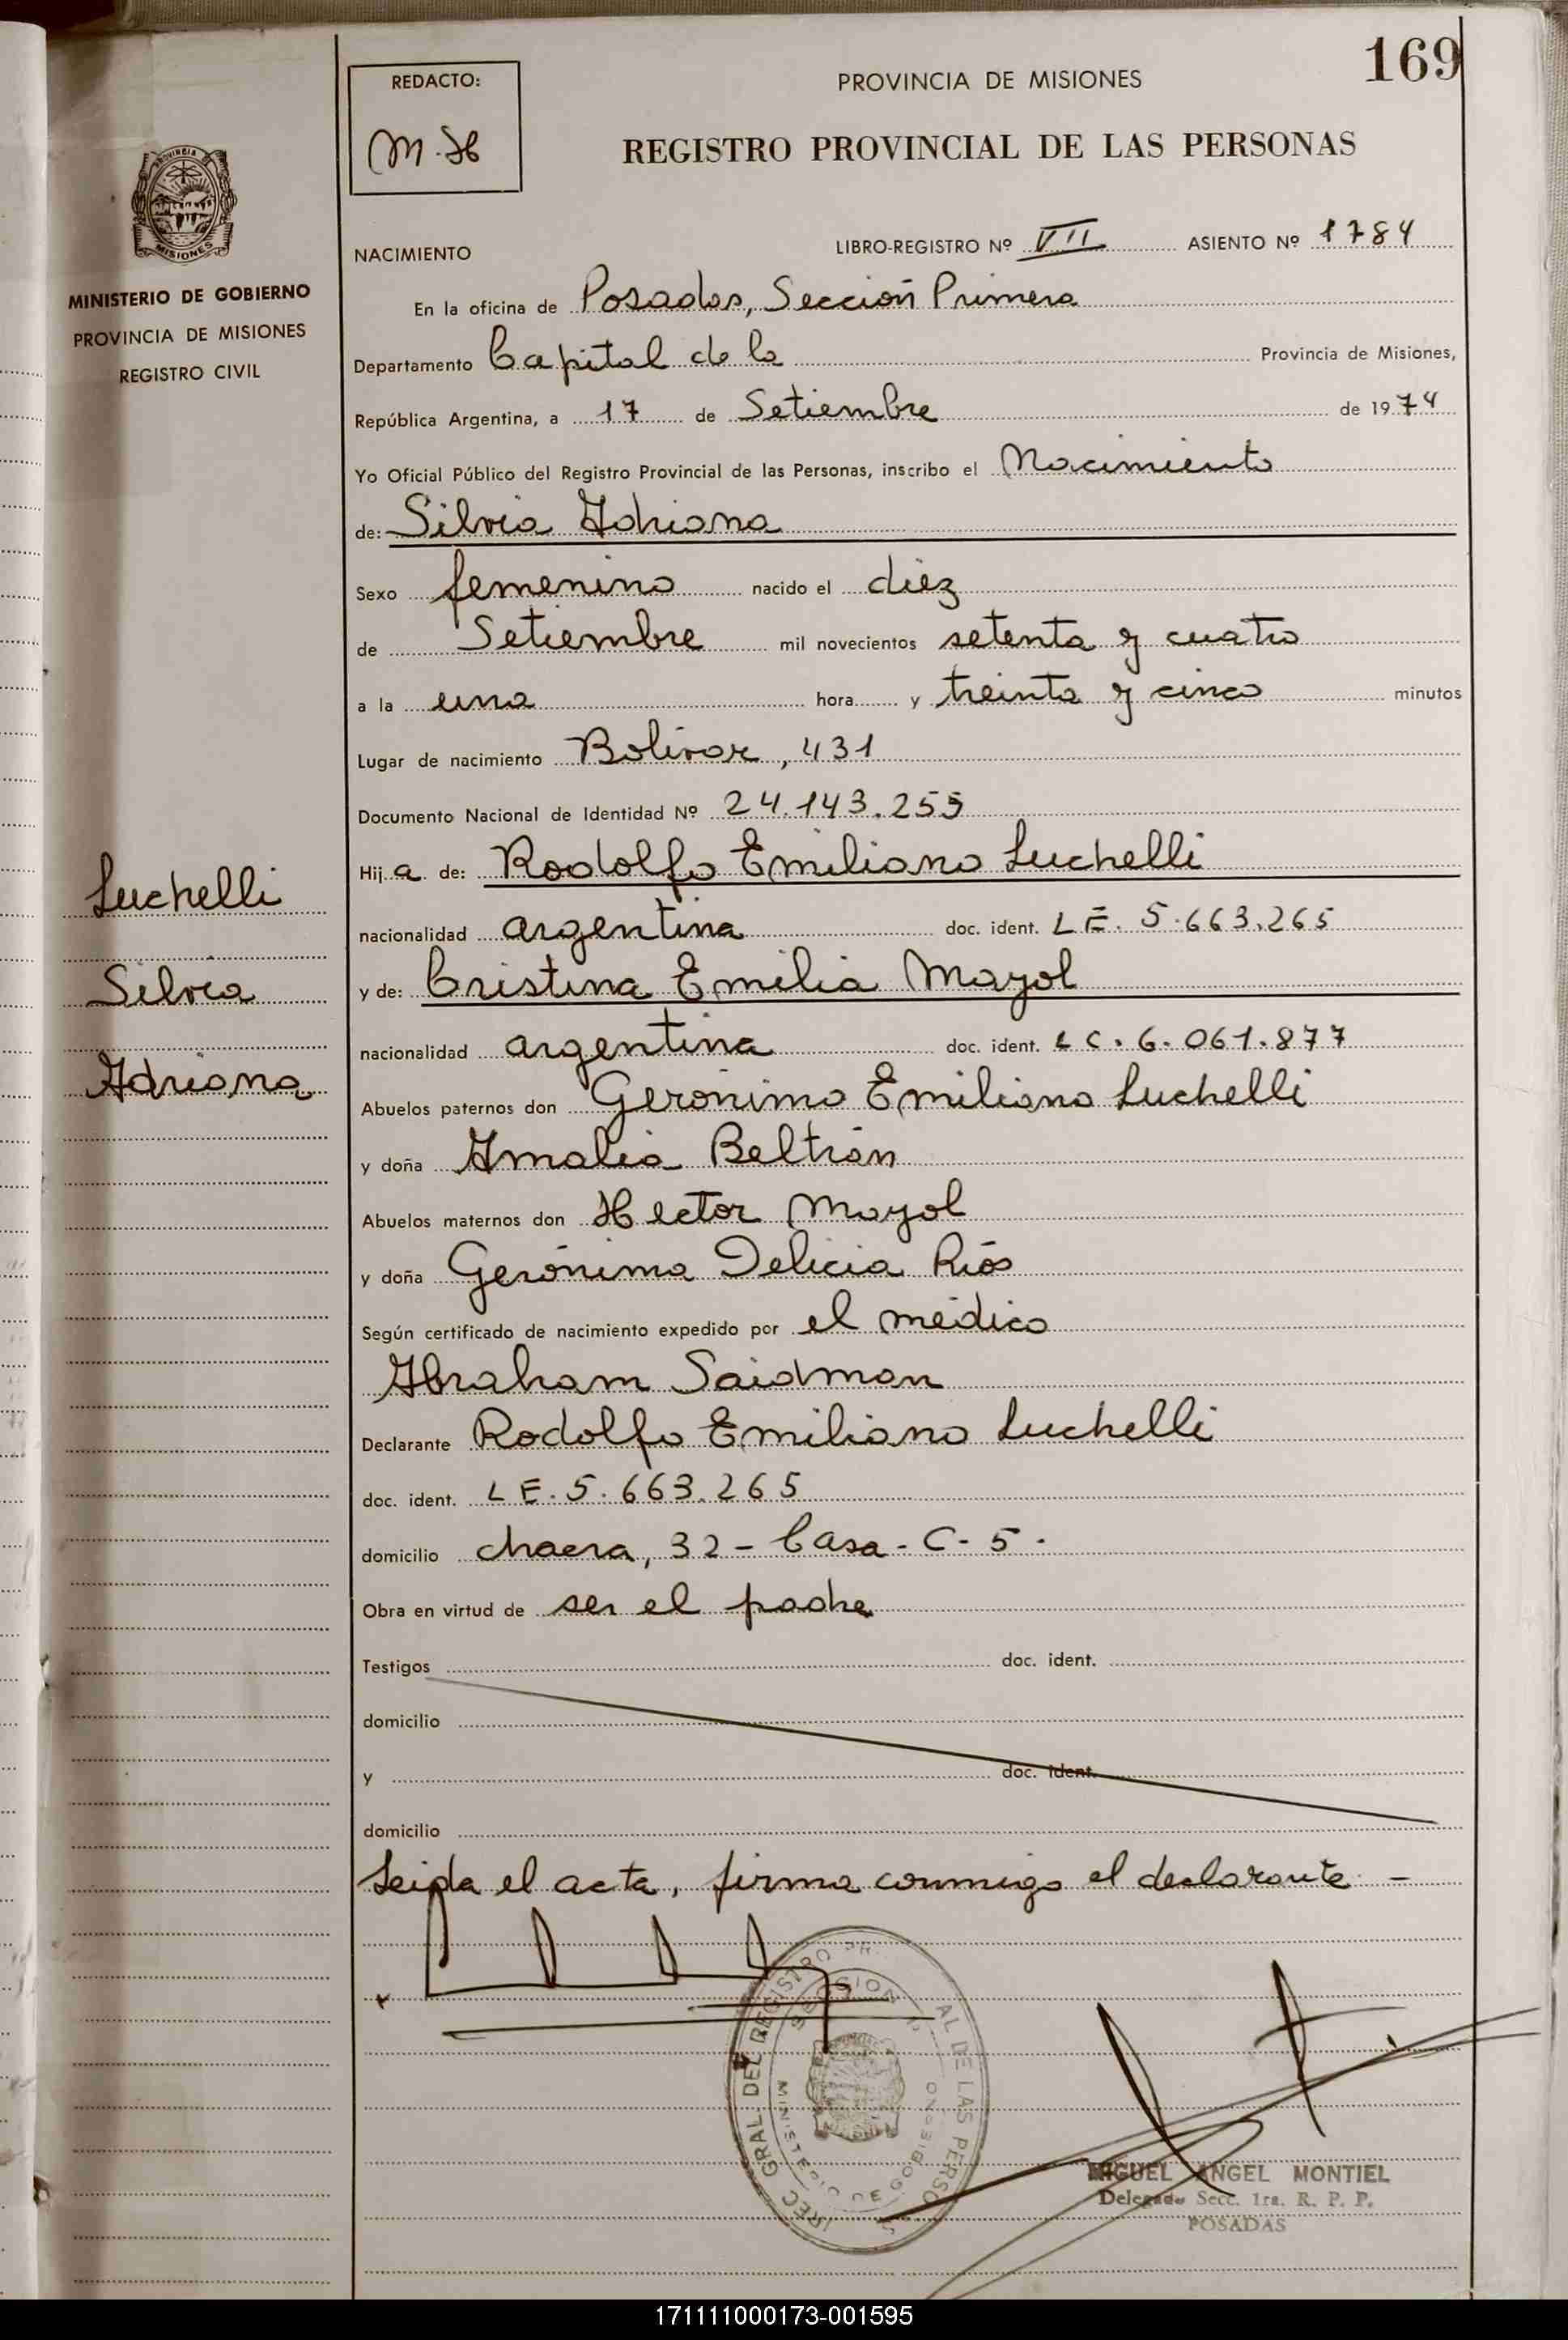 169
REDACTO:
M. H
PROVINCIA DE MISIONES
REGISTRO PROVINCIAL DE LAS PERSONAS
PROVINCIA DE
MISIONES
MINISTERIO DE GOBIERNO
PROVINCIA DE MISIONES
REGISTRO CIVIL
NACIMIENTO LIBRO-REGISTRO Nº VII ASIENTO Nº 1784
En la oficina de Posadas, Sección Primera
Departamento Capital de la Provincia de Misiones,
República Argentina, a 17 de Setiembre de 1974
Yo Oficial Público del Registro Provincial de las Personas, inscribo el Nacimiento
de: Silvia Adriana
Sexo femenino nacido el diez
de Setiembre mil novecientos setenta y cuatro
a la una hora y treinta y cinco minutos
Lugar de nacimiento Bolivar, 431
Documento Nacional de Identidad Nº 24.143.255
Hija de: Rodolfo Emiliano Luchelli
nacionalidad argentina doc. ident. LE. 5.663.265
y de: Cristina Emilia Mayol
nacionalidad argentina doc. ident. LC. 6.061.877
Abuelos paternos don Gerónimo Emiliano Luchelli
y doña Amalia Beltrán
Abuelos maternos don Hector Mayol
y doña Gerónima Delicia Ríos
Según certificado de nacimiento expedido por el médico
Abraham Saidman
Declarante Rodolfo Emiliano Luchelli
doc. ident. LE. 5.663.265
domicilio chacra, 32 - Casa - C - 5 -
Obra en virtud de ser el padre
Testigos doc. ident.
domicilio
y doc. ident.
domicilio
Leida el acta, firma conmigo el declarante -
Luchelli
Silvia
Adriana
MINISTERIO DE GOBIERNO
MIGUEL ANGEL MONTIEL
Delegado Secc. 1ra. R. P. P.
POSADAS
171111000173-001595